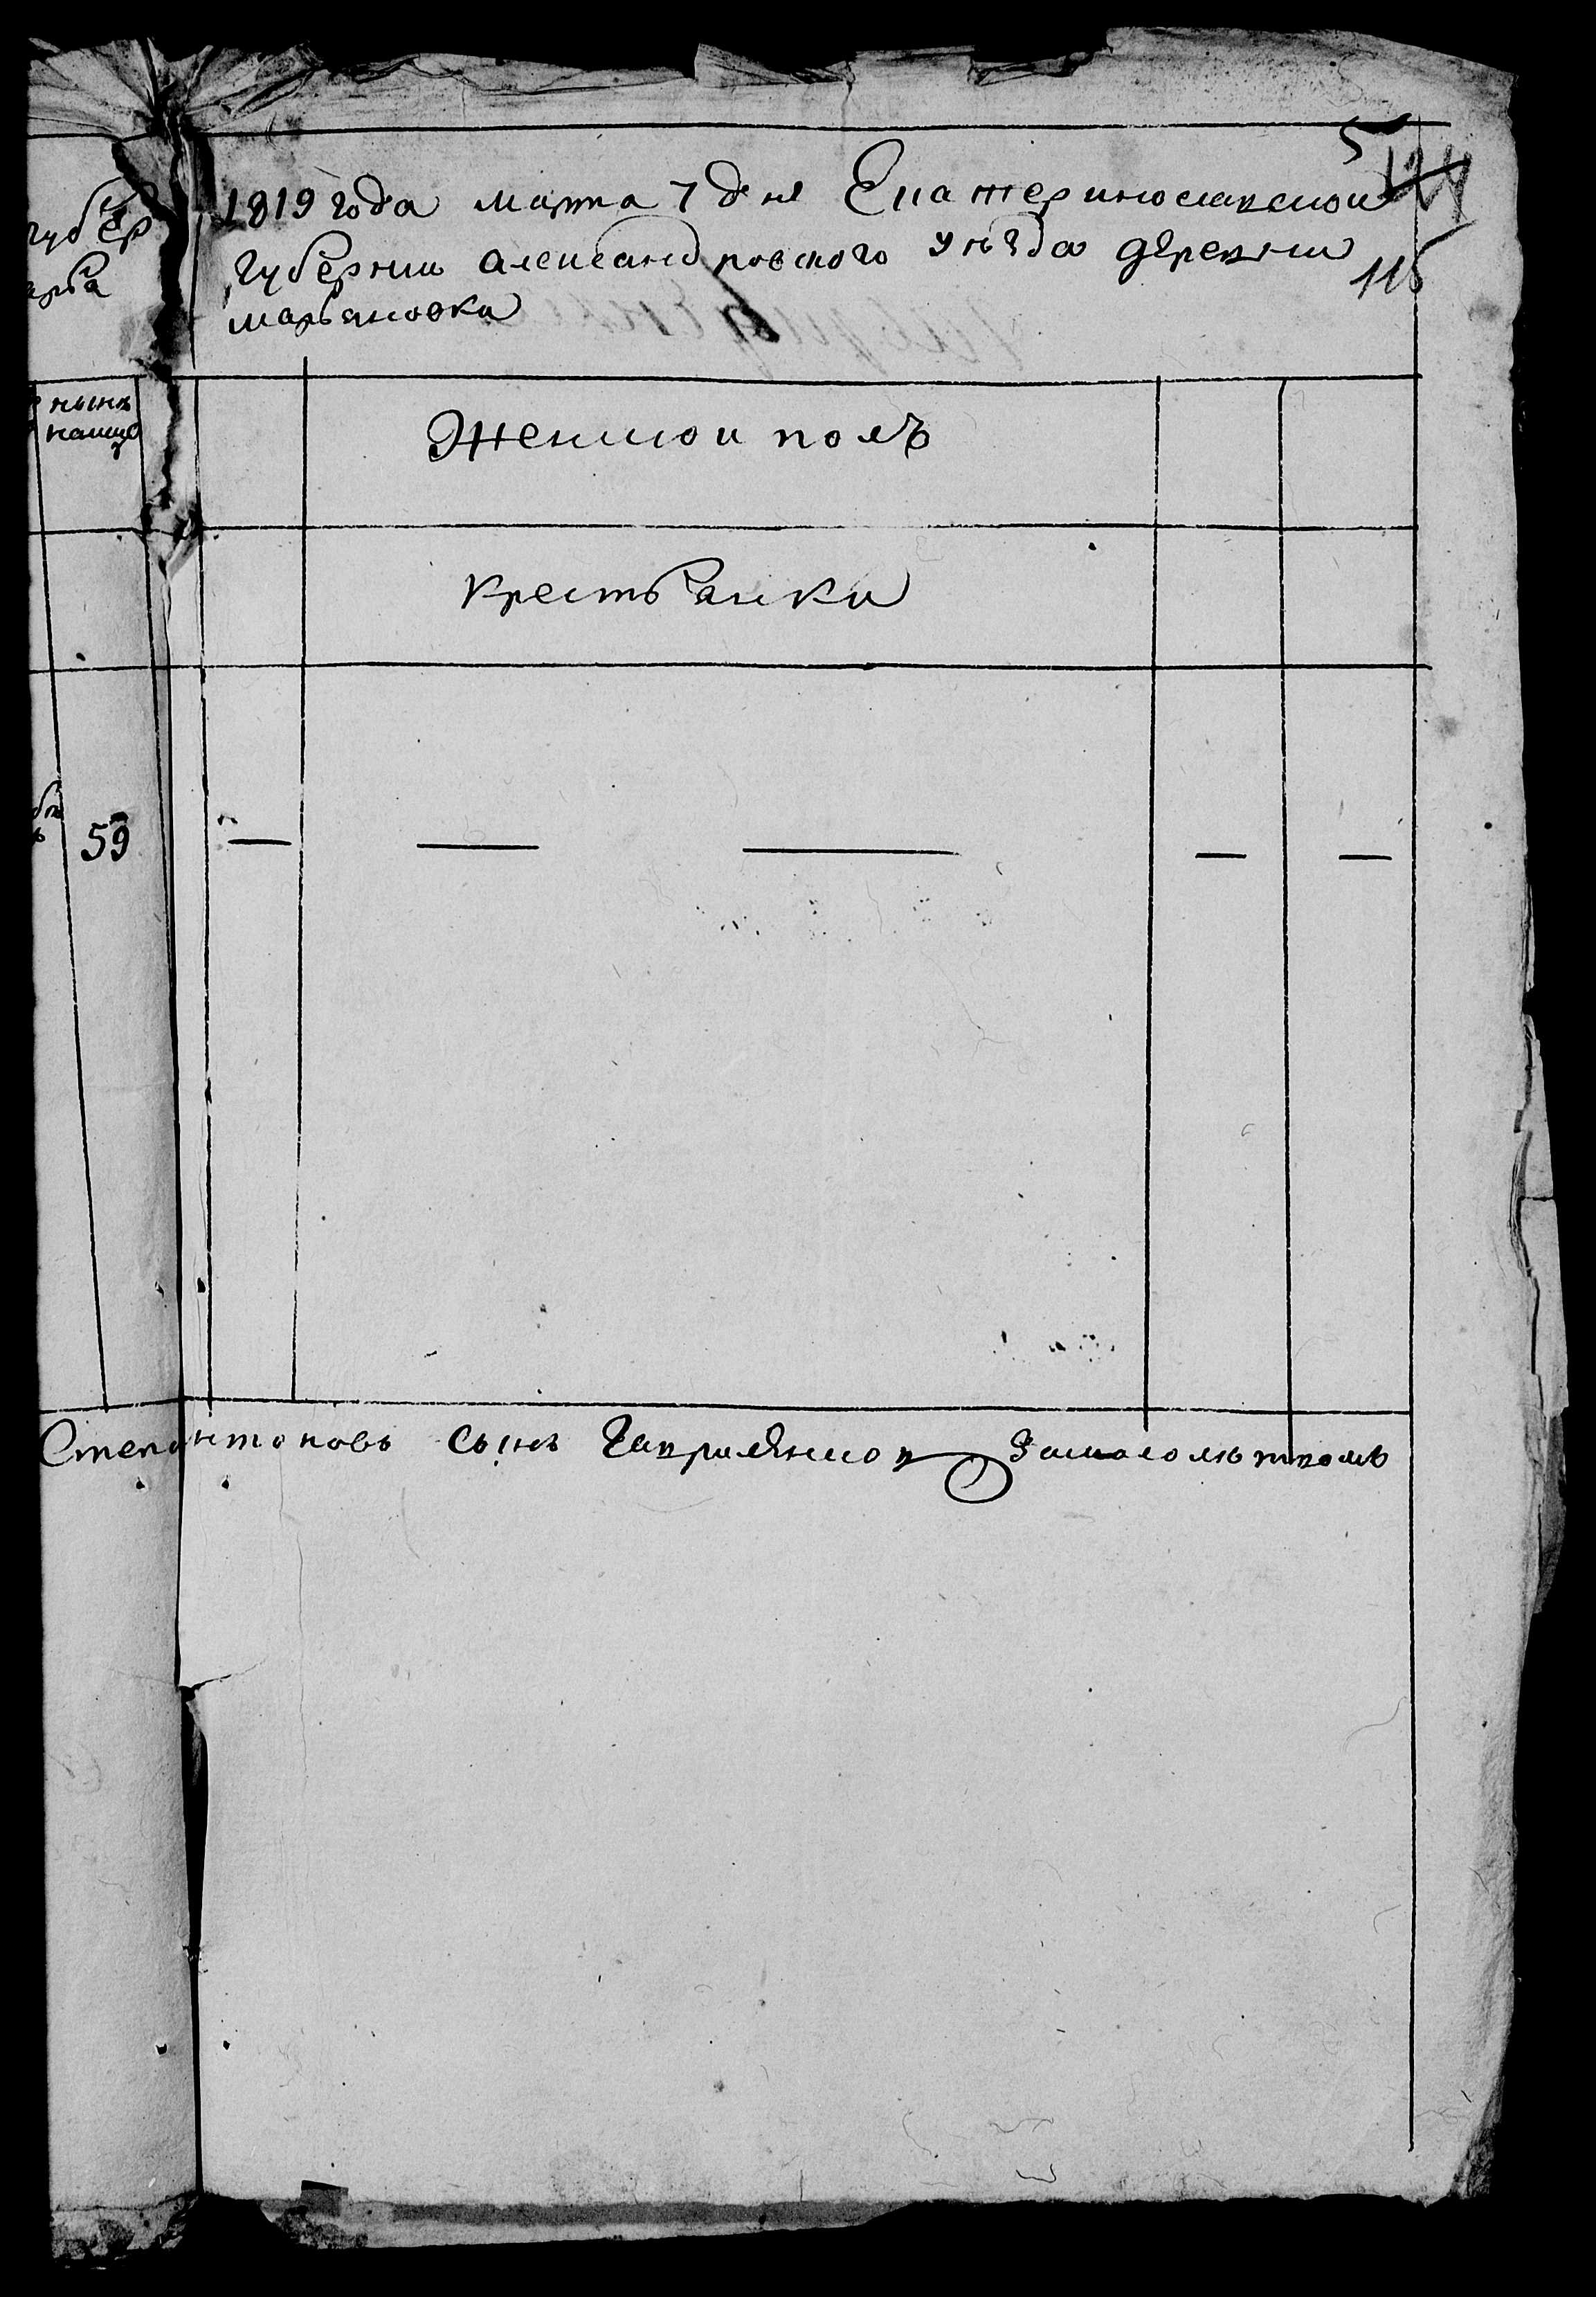 5
124
115
губер
1819 года марта 7 дня Екатеринославской
губернии александровского уѣзда деревни
марьяновки
нынѣ
налицо
Женской полъ
крестьянки
59 — — — — —
Степанъ Антоновъ сынъ Гаврилѣнков Замалолѣтномъ